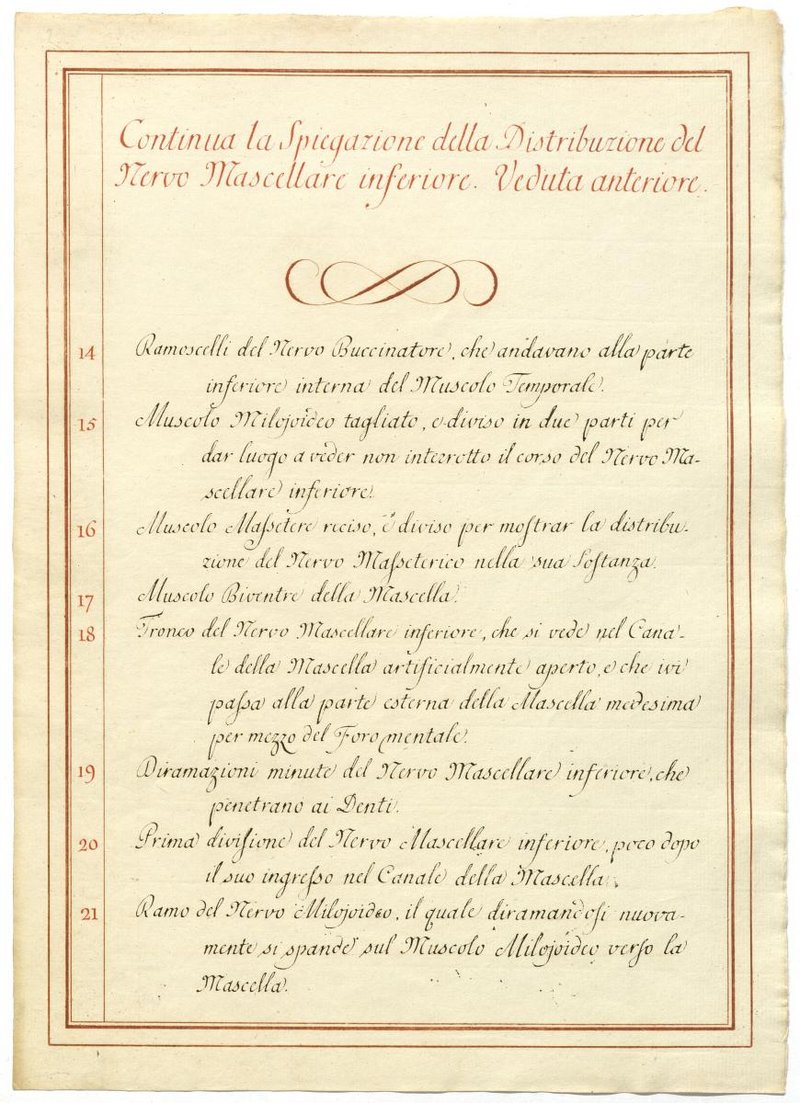 Continua la Spiegazione della Distribuzione del
Nervo Mascellare inferiore. Veduta anteriore.
14 Ramoscelli del Nervo Buccinatore, che andavano alla parte
inferiore interna del Muscolo Temporale.
15 Muscolo Milojoideo tagliato, e diviso in due parti per
dar luogo a veder non interrotto il corso del Nervo Ma-
scellare inferiore.
16 Muscolo Maſsetere reciso, e diviso per moſtrar la distribu-
zione del Nervo Maſseterico nella sua Soſtanza.
17 Muscolo Biventre della Mascella.
18 Tronco del Nervo Mascellare inferiore, che si vede nel Cana-
le della Mascella artificialmente aperto, e che ivi
paſsa alla parte esterna della Mascella medesima
per mezzo del Foro mentale.
19 Diramazioni minute del Nervo Mascellare inferiore, che
penetrano ai Denti.
20 Prima diviſione del Nervo Mascellare inferiore, poco dopo
il suo ingreſso nel Canale della Mascella.
21 Ramo del Nervo Milojoideo, il quale diramandoſi nuova-
mente si spande sul Muscolo Milojoideo verſo la
Mascella.